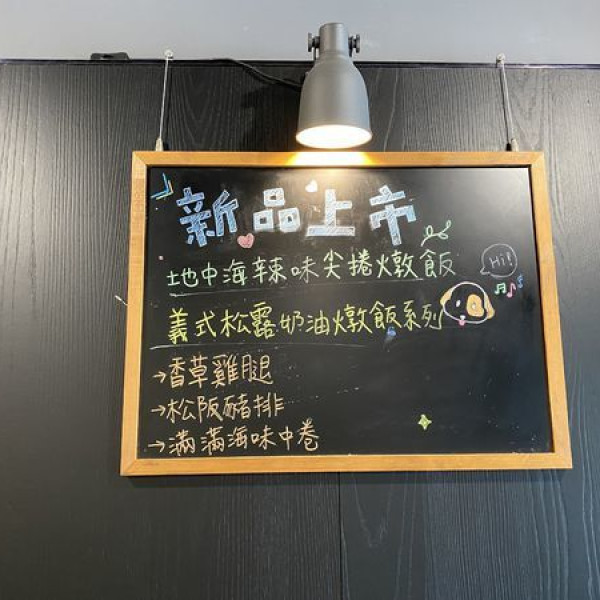 新品上市
地中海辣味尖捲燉飯
Hi!
義式松露奶油燉飯系列
→香草雞腿
→松阪豬排
→滿滿海味中卷